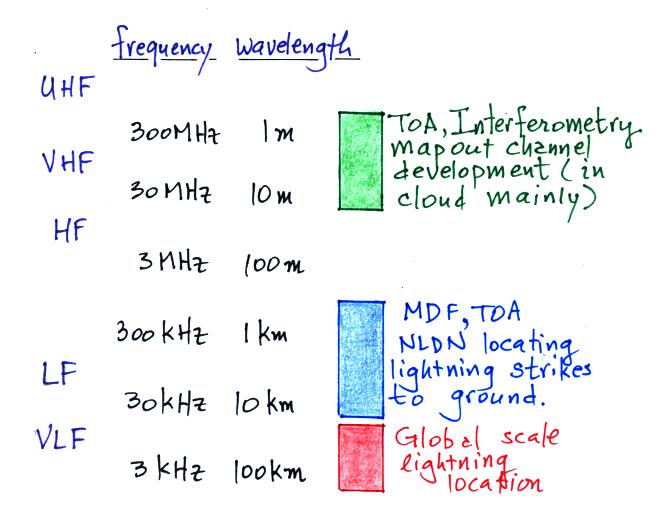 frequency wavelength
UHF
300MHz 1m
TOA, Interferometry
map out channel
development (in
cloud mainly)
VHF
30MHz 10m
HF
3MHz 100m
300kHz 1km
MDF, TOA
NLDN locating
lightning strikes
to ground.
LF
30kHz 10km
VLF
3kHz 100km
Global scale
lightning
location